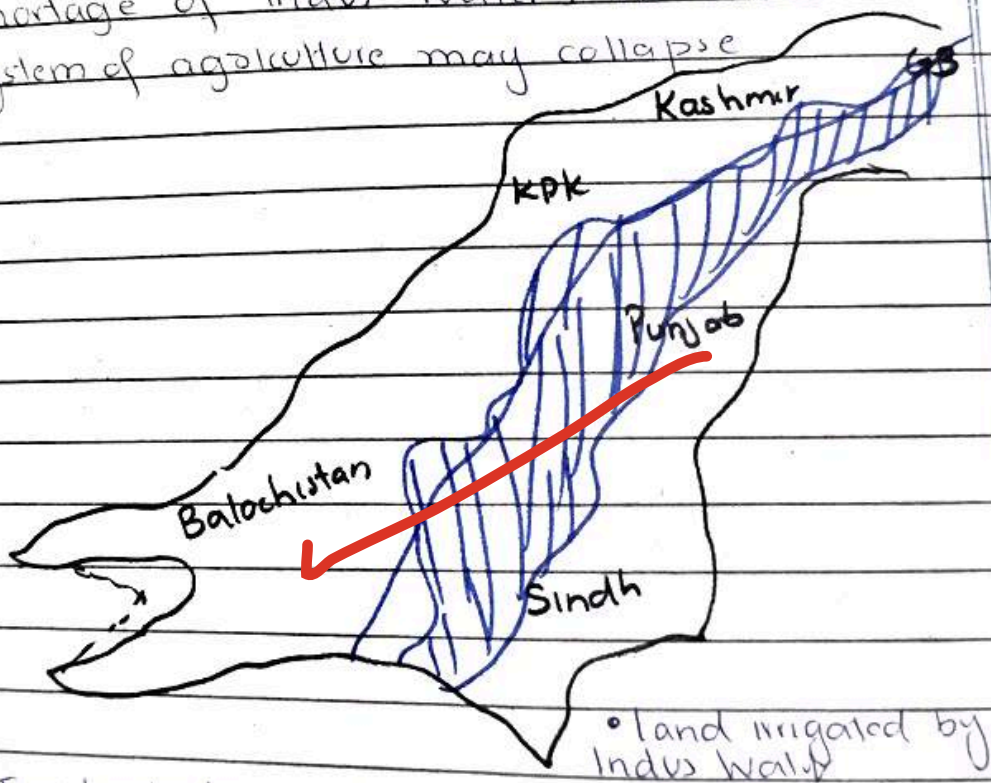 shortage of Indus Water
system of agriculture may collapse
GB
Kashmir
KPK
Punjab
Balochistan
Sindh
• land irrigated by
Indus Water